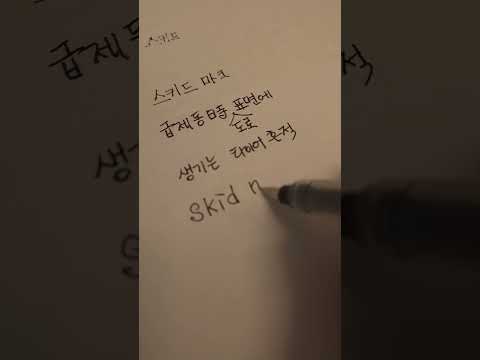 스키드
스키드 마크
급제동時 표면에
도로
생기는 타이어 흔적
Skid